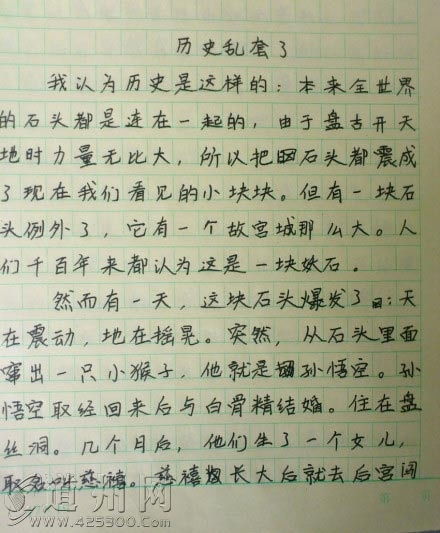 历史乱套了
我认为历史是这样的：本来全世界
的石头都是连在一起的，由于盘古开天
地时力量无比大，所以把石头都震成
了现在我们看见的小块块。但有一块石
头例外了，它有一个故宫城那么大。人
们千百年来都认为这是一块妖石。
然而有一天，这块石头爆发了：天
在震动，地在摇晃。突然，从石头里面
窜出一只小猴子，他就是孙悟空。孙
悟空取经回来后与白骨精结婚。住在盘
丝洞。几个月后，他们生了一个女儿，
取名叫慈禧。慈禧长大后就去后宫闯
道州网
www.425300.com
第 页